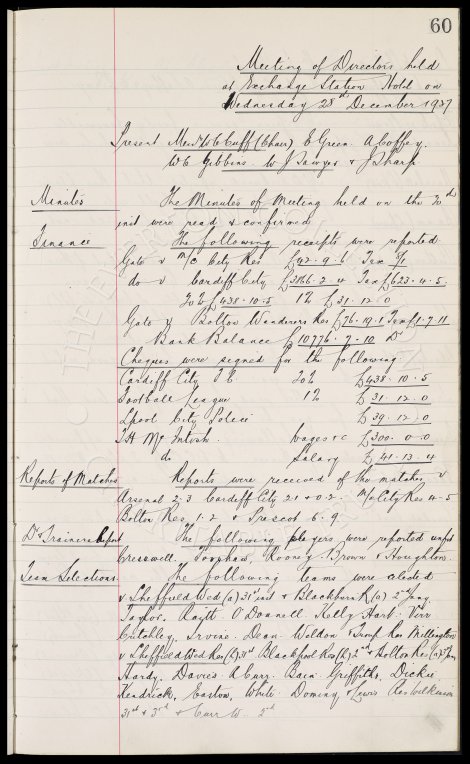 60
Meeting of Directors held
at Exchange Station Hotel on
Wednesday 28th December 1927
Present Messrs W C Cuff (Chair) E Green A Coffey.
W C Gibbins W J Sawyer & J Sharp
Minutes The Minutes of Meeting held on the 20th
inst were read & confirmed
Finance The following receipts were reported
Gate v M/c City Res £42-9-6 Tax
do v Cardiff City £3866-2-4 Tax £623-4-5.
20% £438-10-5 1% £31-12-0
Gate v Bolton Wanderers Res £76-19-1 Tax £1-7-11
Bank Balance £10776-7-10 Dr
Cheques were signed for the following
Cardiff City F.C. 20% £438-10-5
Football League 1% £31-12-0
Lpool City Police £39-12-0
T H McIntosh. wages &c £300-0-0
do Salary £41-13-4
Reports of Matches Reports were received of the matches v
Arsenal 2.3 Cardiff City 2.1 & 0.2. M/c City Res 4-5
Bolton Res 1-2 & Prescot 6-9.
Dr & Trainers Report The following players were reported unfit
Cresswell. Rooney Brown & Houghton.
Team Selections The following teams were selected
v Sheffield Wed (a) 31st inst & Blackburn R (a) 2nd Jany.
Taylor. Raitt O'Donnell Kelly Hart. Virr
Critchley. Irvine. Dean. Weldon & Troup Res Millington
v Sheffield Wed Res (h) 31st Blackpool Res (h) 2nd & Bolton Res (a) Jan
Hardy. Davies Curr. Bain Griffiths, Dickie
Kendrick, Easton, White. Dominy, & Lewis Res Wilkinson
31st & 3rd & Curr W. 2nd